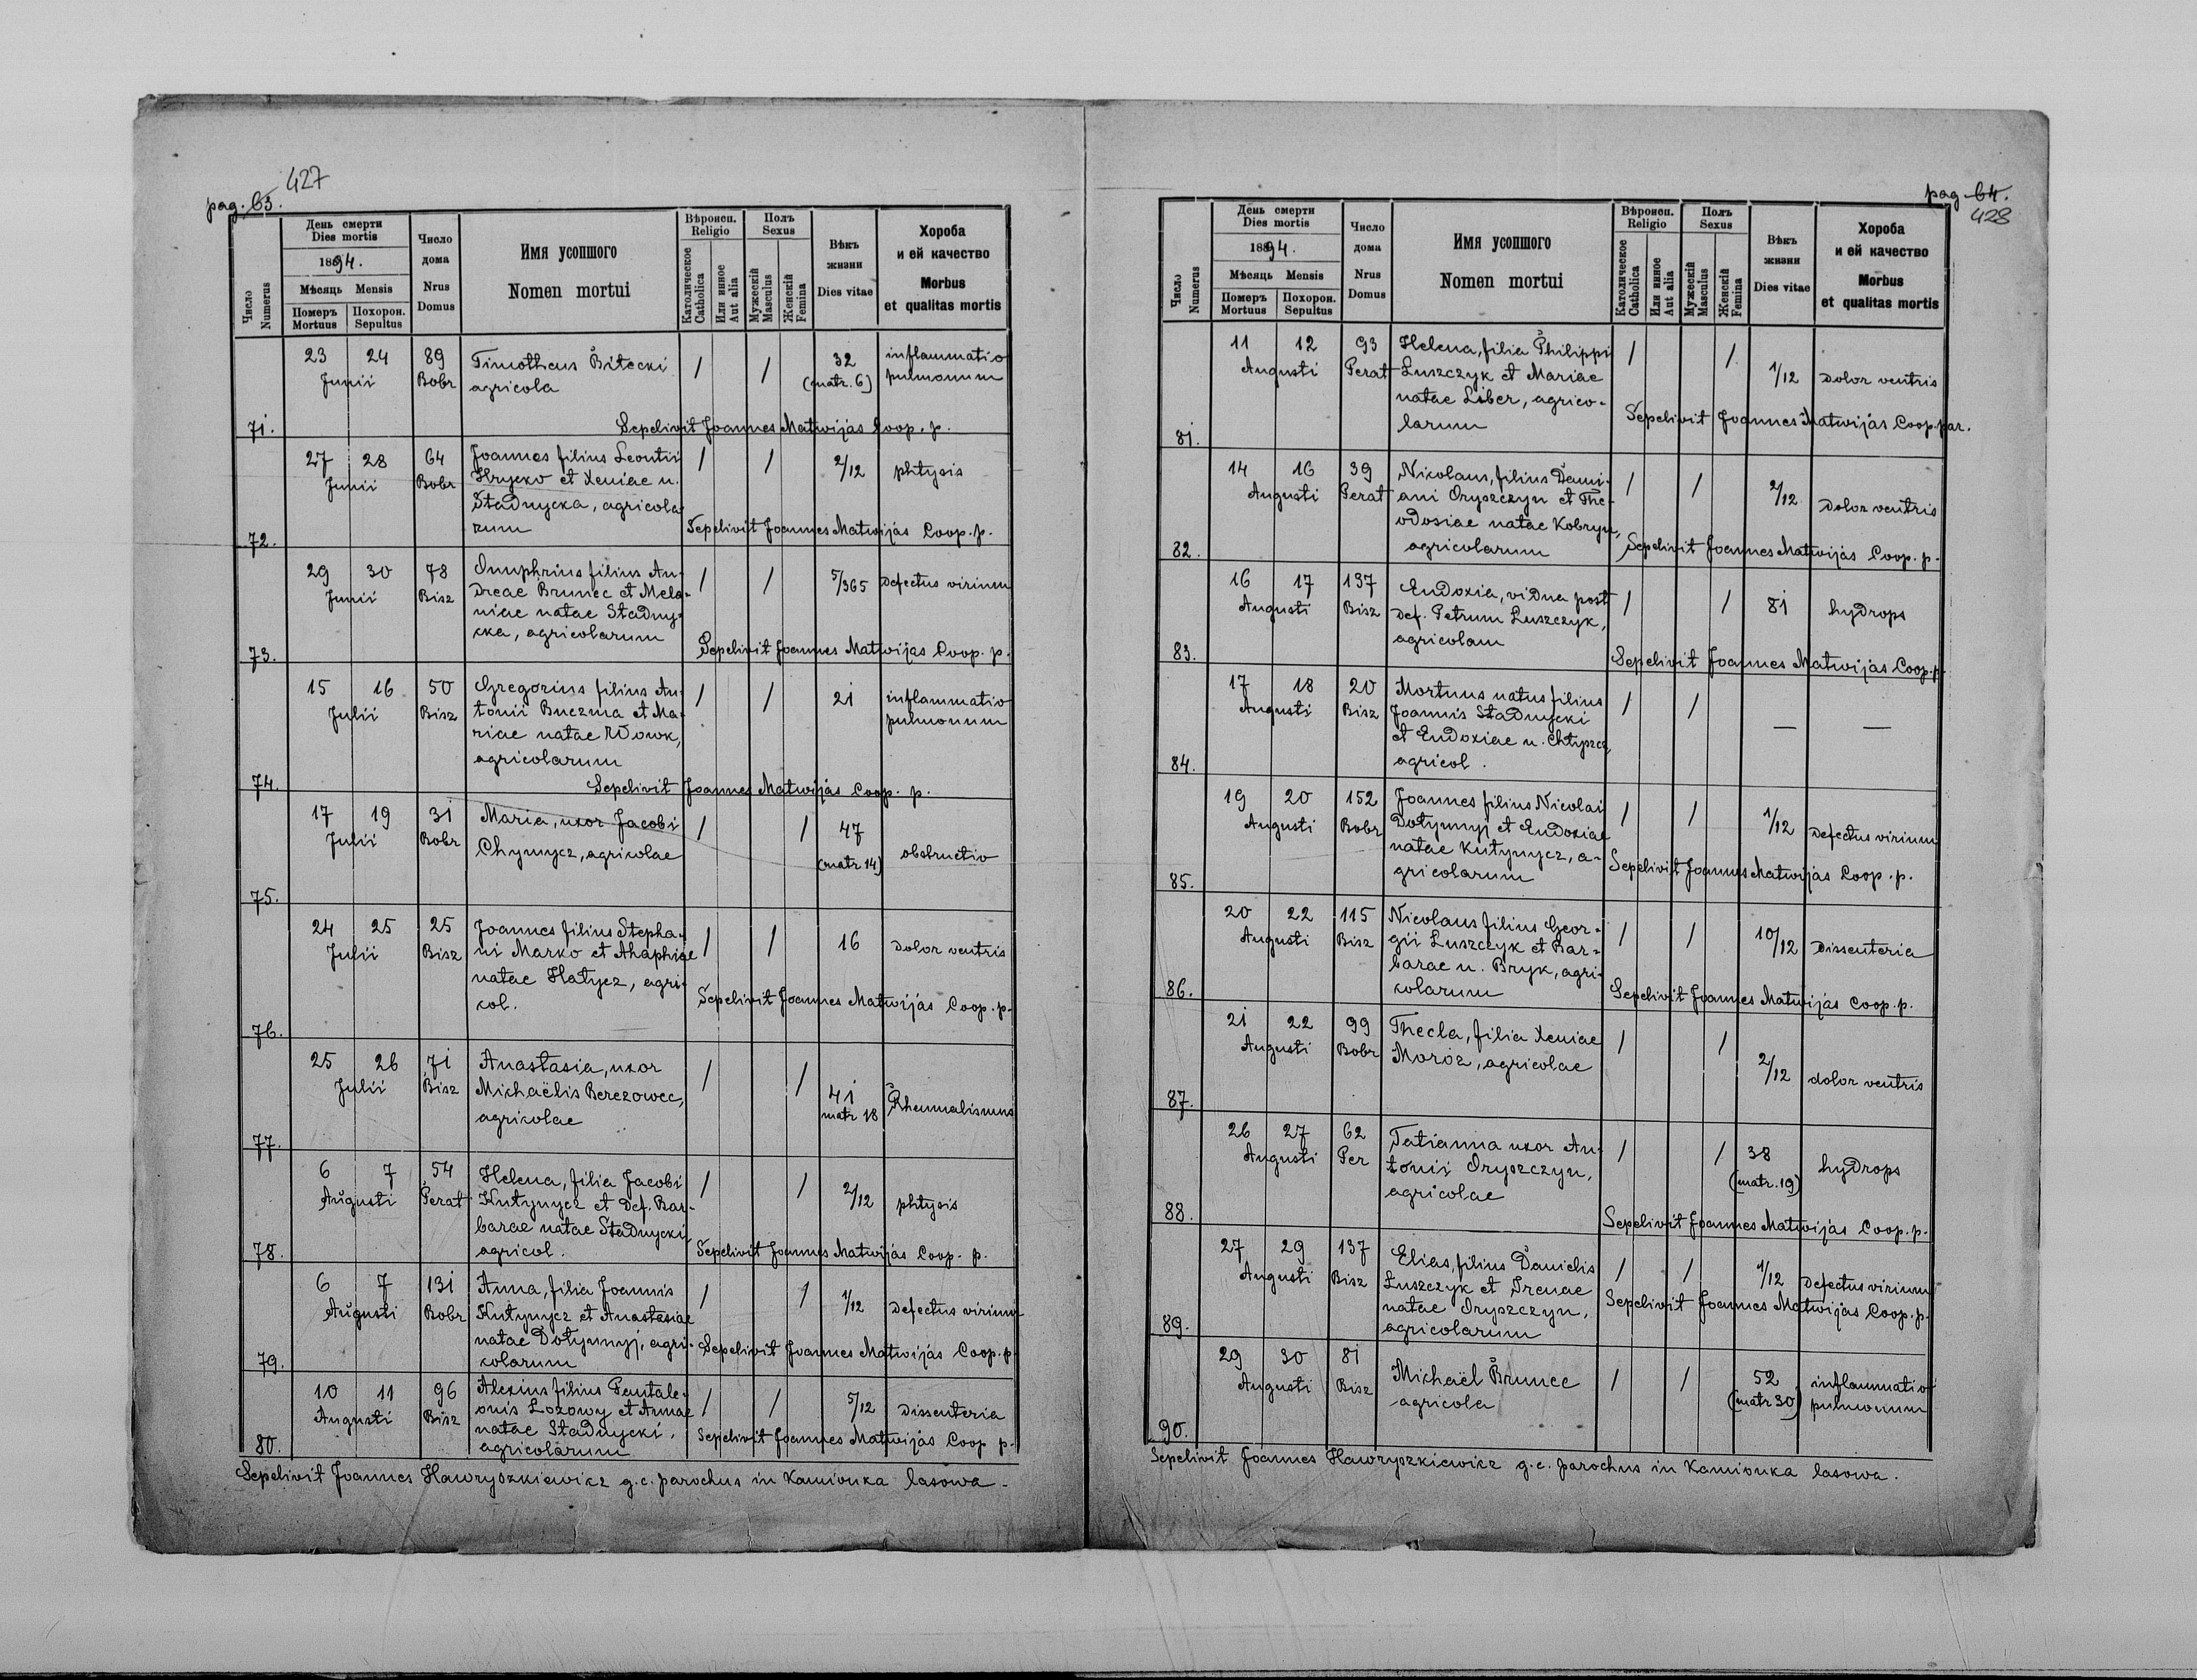 427
pag. 63.
Число Numerus
День смерти
Dies mortis
1894.
Мѣсяць Mensis
Померъ Mortuus
Похорон. Sepultus
Число дома
Nrus Domus
Имя усопшого
Nomen mortui
Вѣроисп. Religio
Католическое Catholica
Или инное Aut alia
Полъ Sexus
Мужескій Masculus
Женскій Femina
Вѣкъ жизни
Dies vitae
Хороба
и ей качество
Morbus
et qualitas mortis
23 24 89 Timotheus Bitecki / / 32 inflammatio
Junii Bobr agricola (matr. 6) pulmonum
71. Sepelivit Joannes Matwijás Coop. p.
27 28 64 Joannes filius Leontii / / 2/12 phtysis
Junii Bobr Hrycko et Xeniae n.
Stadnycka, agricola
72. rum Sepelivit Joannes Matwijás Coop. p.
29 30 78 Onuphrius filius An- / / 5/365 Defectus virium
Junii Bisz dreae Brunec et Mela-
niae natae Stadny-
cka, agricolarum
73. Sepelivit Joannes Matwijas Coop. p.
15 16 50 Gregorius filius An- / / 21 inflammatio
Julii Bisz tonii Buczma et Ma- pulmonum
riae natae Wowk,
agricolarum
74. Sepelivit Joannes Matwijás Coop. p.
17 19 31 Maria, uxor Jacobi / / 47
Julii Bobr Chymycz, agricolae (matr 14) obstructio
75.
24 25 25 Joannes filius Stepha- / / 16 dolor ventris
Julii Bisz ni Marko et Ahaphiae
natae Hatycz, agri-
col. Sepelivit Joannes Matwijás Coop. p.
76.
25 26 71 Anastasia, uxor / / 41 Rheumatismus
Julii Bisz Michaëlis Berezowec, matr 18
agricolae
77.
6 7 54 Helena, filia Jacobi / / 2/12 phtysis
Augusti Perat Kutynycz et def. Bar-
barae natae Stadnycki,
78. agricol. Sepelivit Joannes Matwijás Coop. p.
6 7 131 Anna, filia Joannis / / 1/12 Defectus virium
Augusti Bobr Kutynycz et Anastasiae
natae Dotynnyj, agri- Sepelivit Joannes Matwijás Coop. p.
79. colarum
10 11 96 Alexius filius Pantale- / / 5/12 Dissenteria
Augusti Bisz onis Lozowy et Annae
natae Stadnycki, Sepelivit Joannes Matwijás Coop p.
80. agricolarum
Sepelivit Joannes Hawryszkiewicz g.c. parochus in Kamionka lasowa.
pag 64.
428
Число Numerus
День смерти
Dies mortis
1894.
Мѣсяць Mensis
Померъ Mortuus
Похорон. Sepultus
Число дома
Nrus Domus
Имя усопшого
Nomen mortui
Вѣроисп. Religio
Католическое Catholica
Или инное Aut alia
Полъ Sexus
Мужескій Masculus
Женскій Femina
Вѣкъ жизни
Dies vitae
Хороба
и ей качество
Morbus
et qualitas mortis
11 12 93 Helena, filia Philippi / / 1/12 dolor ventris
Augusti Perat Luszczyk et Mariae
natae Liber, agrico-
81. larum Sepelivit Joannes Matwijás Coop. par.
14 16 39 Nikolaus, filius Dami- / / 2/12 dolor ventris
Augusti Perat ani Oryszczyn et The-
odosiae natae Kobryn,
82. agricolarum Sepelivit Joannes Matwijás Coop. p.
16 17 137 Eudoxia, vidua post / / 81 hydrops
Augusti Bisz def. Petrum Luszczyk,
agricolam
83. Sepelivit Joannes Matwijás Coop. p.
17 18 20 Mortuus natus filius / / — —
Augusti Bisz Joannis Stadnycki
et Eudoxiae n. Chtyszcz
84. agricol.
19 20 152 Joannes filius Nicolai / / 1/12 Defectus virium
Augusti Bobr Dotynnyj et Eudoxiae
natae Kutynycz, a- Sepelivit Joannes Matwijás Coop. p.
85. gricolarum
20 22 115 Nicolaus filius Geor- / / 10/12 Dissenteria
Augusti Bisz gii Luszczyk et Bar-
barae n. Bryk, agri-
86. colarum Sepelivit Joannes Matwijás Coop. p.
21 22 99 Thecla, filia Xeniae / / 2/12 dolor ventris
Augusti Bobr Moróz, agricolae
87.
26 27 62 Tatianna uxor An- / / 38 hydrops
Augusti Per tonii Oryszczyn, (matr. 19)
agricolae
88. Sepelivit Joannes Matwijás Coop. p.
27 29 137 Elias, filius Danielis / / 1/12 Defectus virium
Augusti Bisz Luszczyk et Irenae
natae Oryszczyn, Sepelivit Joannes Matwijás Coop. p.
89. agricolarum
29 30 81 Michaël Brunec / / 52 inflammatio
Augusti Bisz agricola (matr 30) pulmonum
90.
Sepelivit Joannes Hawryszkiewicz g.c. parochus in Kamionka lasowa.